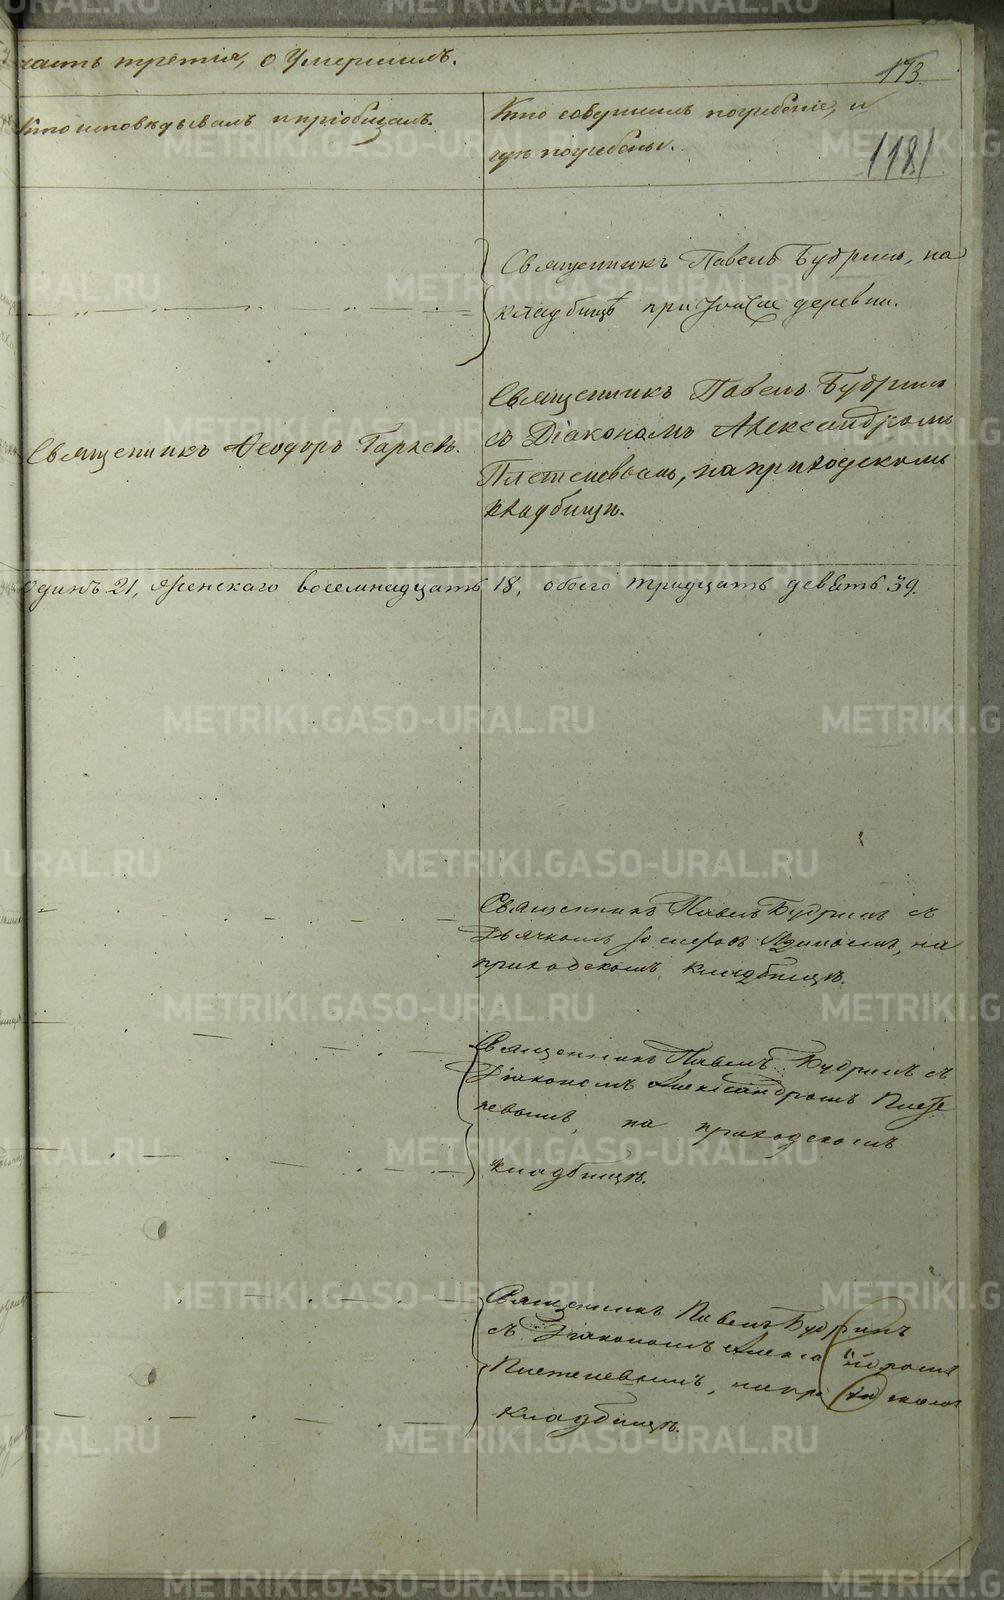 часть третія, о Умершихъ.
173
Кто исповѣдывалъ и пріобщалъ.
Кто совершалъ погребеніе, и
гдѣ погребены.
118
Священникъ Павелъ Будринъ, на
кладбищѣ при деревни.
Священникъ Ѳеодоръ
Священникъ Павелъ Будринъ
съ Діакономъ Александромъ
Плетеневымъ, на приходскомъ
кладбищѣ.
одинъ 21, женскаго восемнадцать 18, обоего тридцать девять 39.
Священникъ Павелъ Будринъ съ
Дьячкомъ на
приходскомъ кладбищѣ.
Священникъ Павелъ Будринъ съ
Діакономъ Александромъ Плете
невымъ, на приходскомъ
кладбищѣ.
Священникъ Павелъ Будринъ
съ Діакономъ Александромъ
Плетеневымъ, на приходскомъ
кладбищѣ.
METRIKI.GASO-URAL.RU